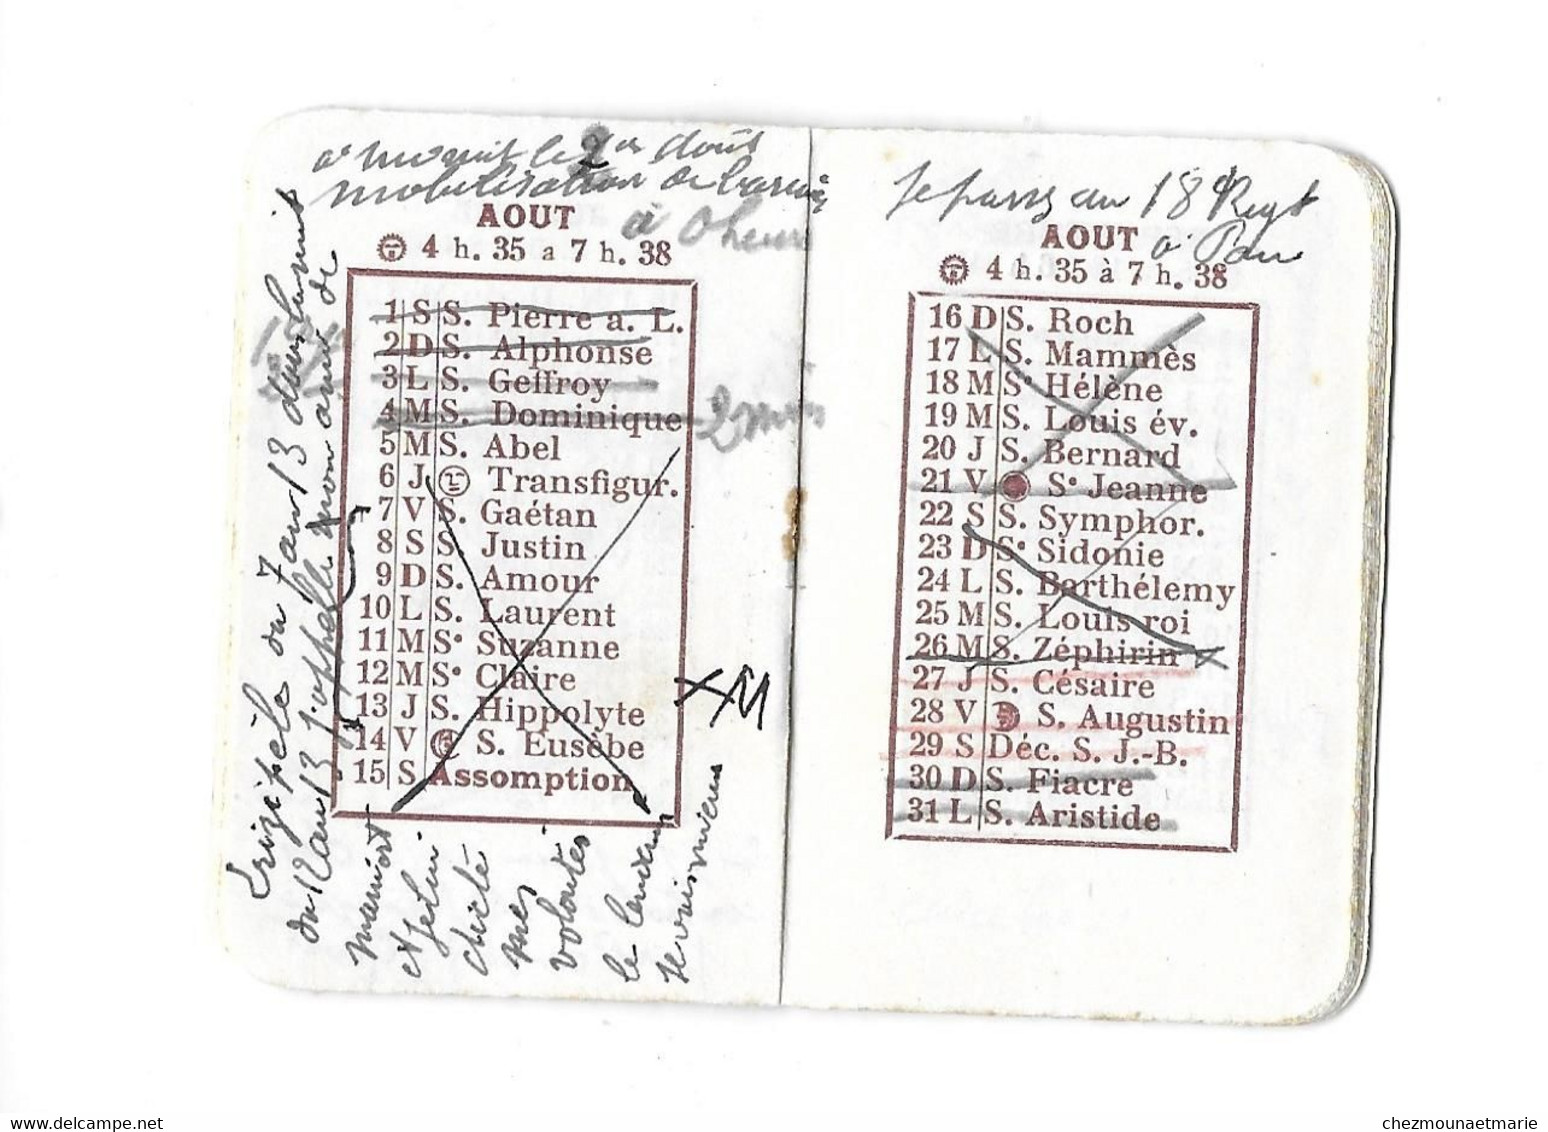 a minuit le 2 août
mobilisation de
à 0 heure
AOUT
4 h. 35 a 7 h. 38
1 S S. Pierre a. L.
2 D S. Alphonse
3 L S. Geffroy
4 M S. Dominique
5 M S. Abel
6 J Transfigur.
7 V S. Gaétan
8 S S. Justin
9 D S. Amour
10 L S. Laurent
11 M Sᵉ Suzanne
12 M Sᵉ Claire
13 J S. Hippolyte
14 V S. Eusèbe
15 S Assomption
XM
Erizipèle du 7 au 13 dans la nuit
du 12 au 13 j'appelle mon ami de
maniort
et je lui
dicté
mes
volontés
le lendemain
je vais mieux
Je passe au 18 Regt
a Pau
AOUT
4 h. 35 à 7 h. 38
16 D S. Roch
17 L S. Mammès
18 M Sᵉ Hélène
19 M S. Louis év.
20 J S. Bernard
21 V Sᵉ Jeanne
22 S S. Symphor.
23 D Sᵉ Sidonie
24 L S. Barthélemy
25 M S. Louis roi
26 M S. Zéphirin
27 J S. Césaire
28 V S. Augustin
29 S Déc. S. J.-B.
30 D S. Fiacre
31 L S. Aristide
www.delcampe.net
chezmounaetmarie